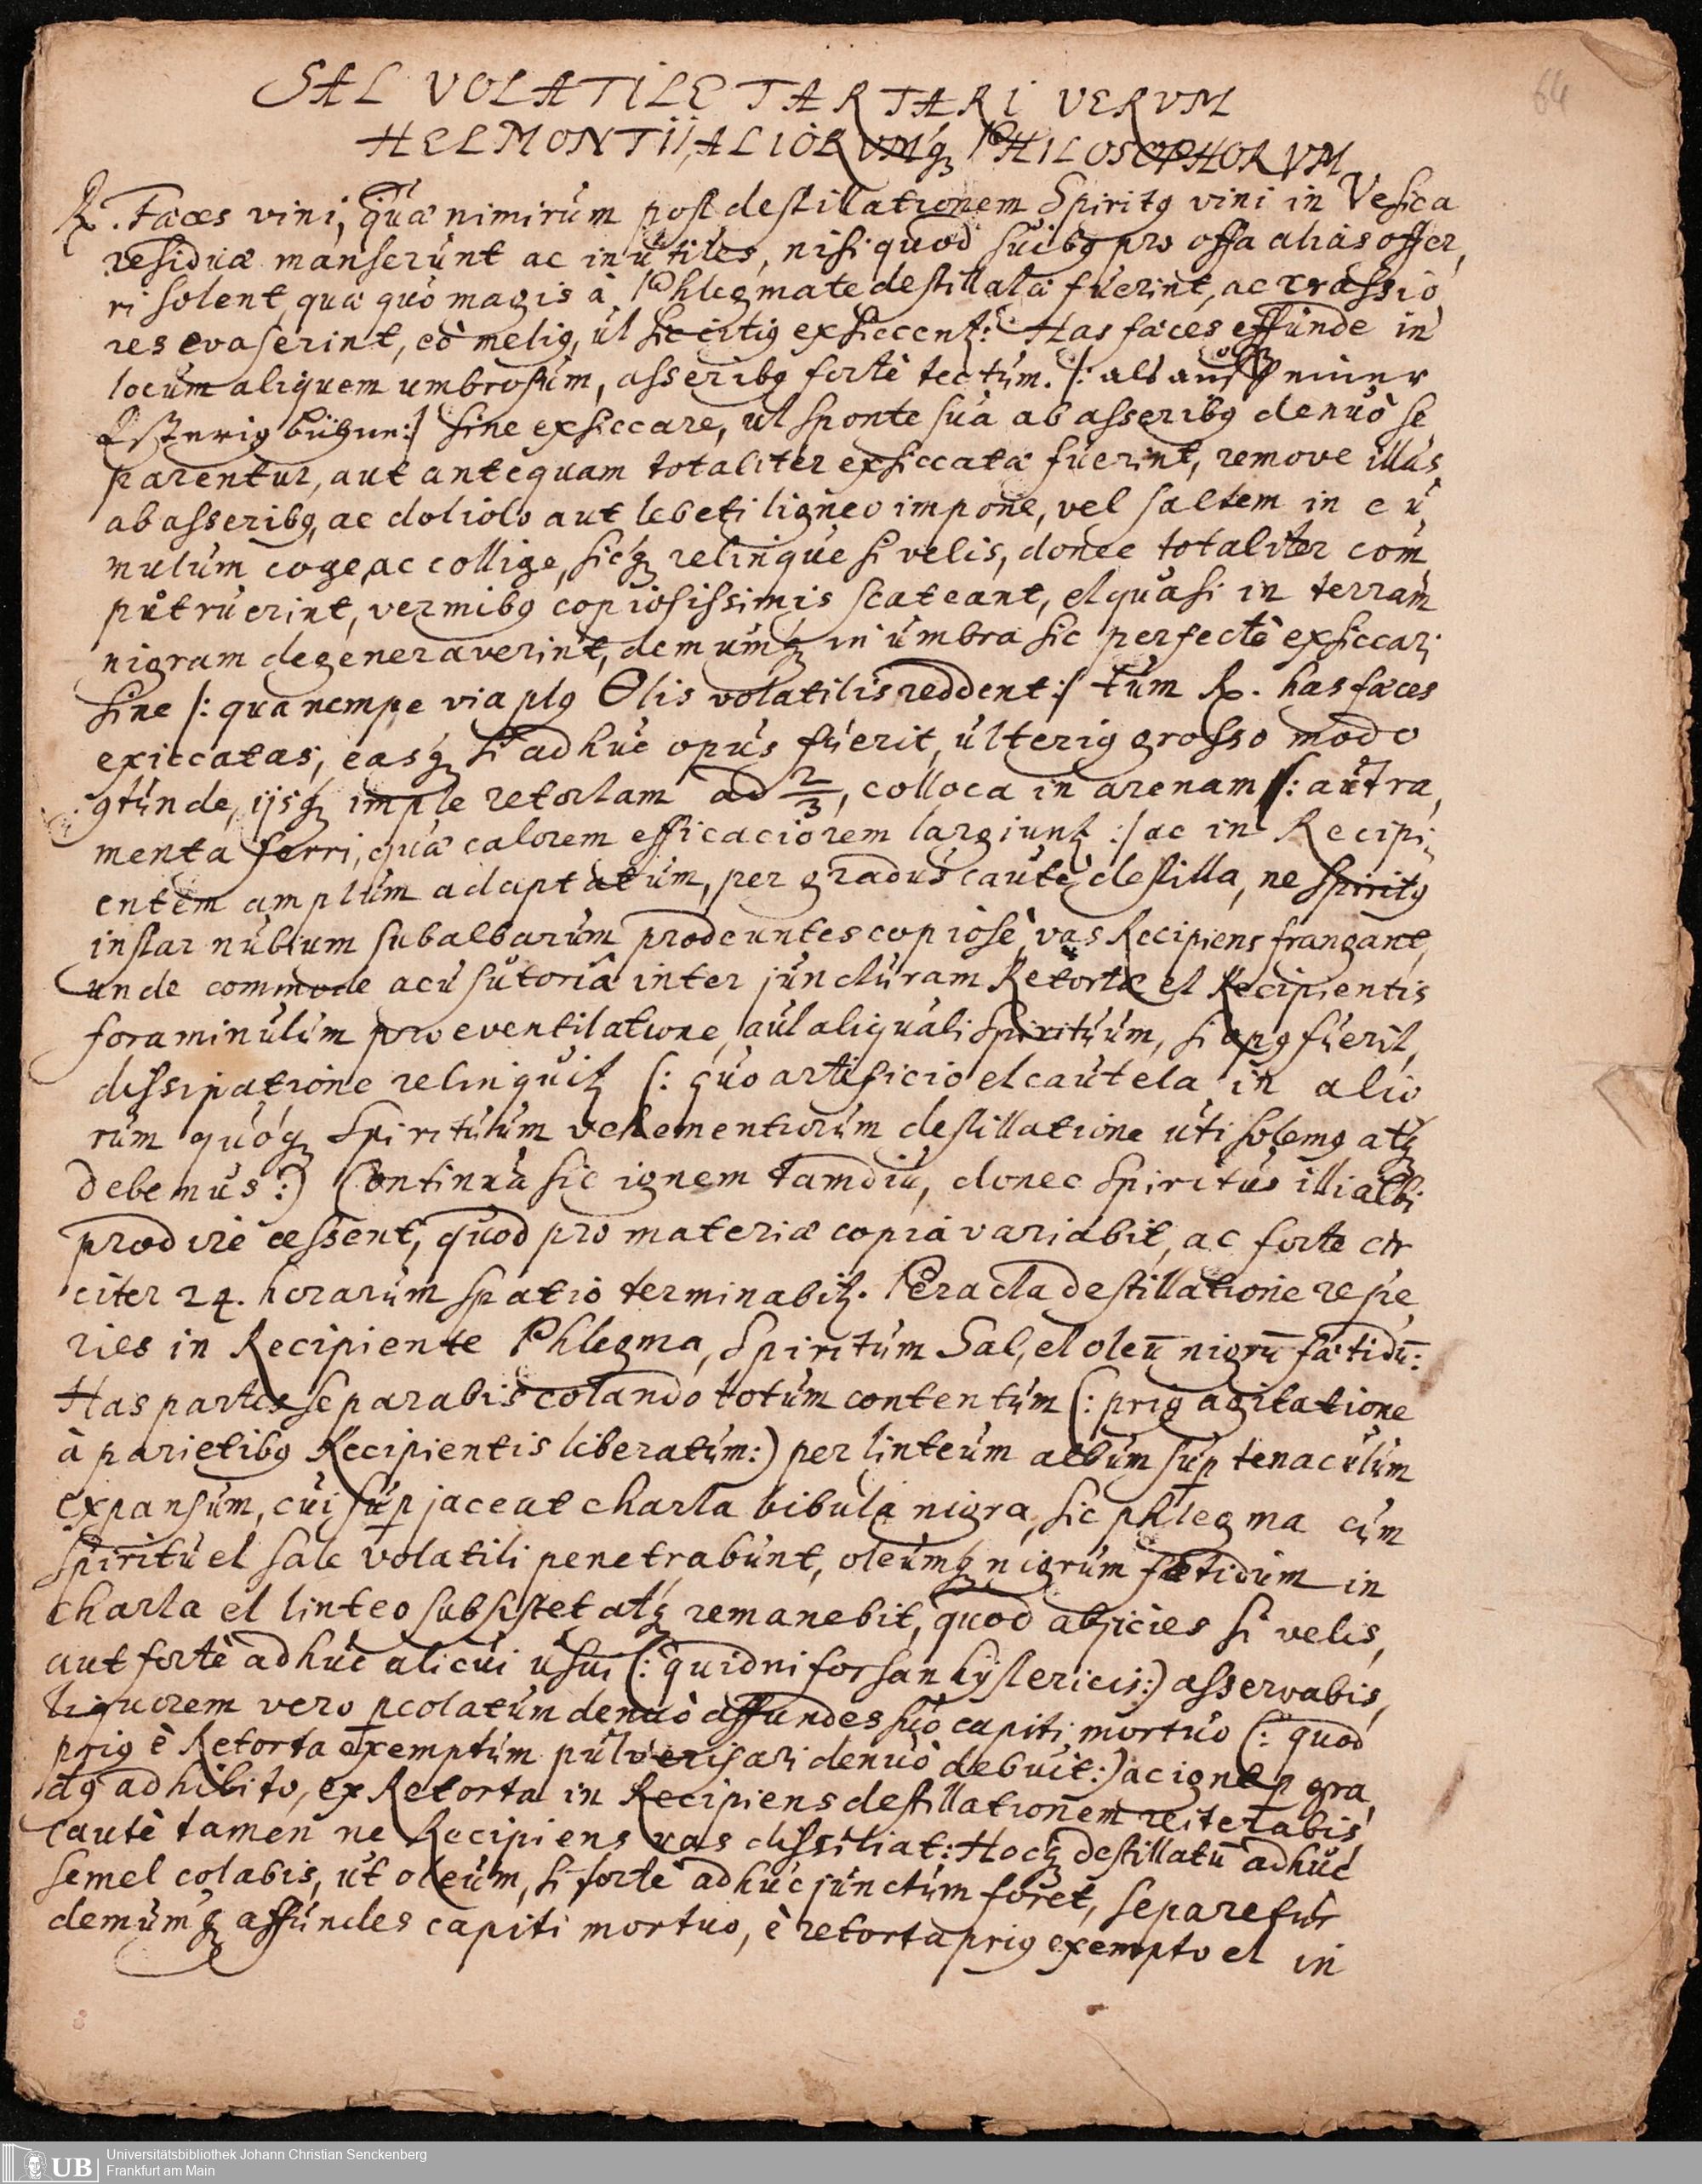 64
SAL VOLATILE TARTARI VERVM
HELMONTII, ALIORVMq́ꝫ PHILOSOPHORVM
℞. Fæces vini, quæ nimirum post destillationem Spiritꝰ vini in Vesica
residuæ manserunt ac inutiles, nisi quod suibꝰ pro offa alias offer,
ri solent, quæ quò magis à Phlegmate destillatæ fuerint, ac crassio,
res evaserint, eò meliꝰ, ut sic citiꝰ exsiccentꝛ: Has fæces effunde in
locum aliquem umbrosum, asseribꝰ fortè tectum. /: als auff einer
Esterig bühne:/ sine exsiccare, ut sponte sua ab asseribꝰ denuò se
parentur, aut antequam totaliter exsiccatæ fuerint, remove illas
ab asseribꝰ, ac doliolo aut lebeti ligneo impone, vel saltem in cu,
mulum coge, ac collige, sicq́ꝫ relinque si velis, donec totaliter com,
putruerint, vermibꝰ copiosissimis scateant, et quasi in terram
nigram degeneraverint, demumq́ꝫ in umbra sic perfectè exsiccari
sine /: qua nempe via plꝰ Olis volatilis reddent:/ tum ℞. has fæces
exiccatas, easq́ꝫ si adhuc opus fuerit, ulteriꝰ grosso modo
ꝯtunde, ijsq́ꝫ imple retortam ad 2/3, colloca in arenam /: aut ra,
menta ferri, quæ calorem efficaciorem largiuntꝛ :/ ac in Recipi,
entem amplum adaptatum, per gradus cautè destilla, ne Spiritꝰ
instar nubium subalbarum prodeuntes copiosè, vas Recipiens frangant,
unde commode acu sutoriâ inter juncturam Retortæ et Recipientis
foraminulum pro eventilatione, aut aliquali Spirituum, si opꝰ fuerit,
dissipatione relinquitꝛ (: quo artificio et cautela in alio
rum quoq́ꝫ Spirituum vehementiorum destillatione uti solemꝰ atq́ꝫ
debemus :) Continua sic ignem tamdiu, donec Spiritus illi albi
prodire cessent, quod pro materiæ copia variabit, ac forte cir
citer 24. horarum spatio terminabitꝛ. Peracta destillatione repe
ries in Recipiente Phlegma, Spiritum Sal, et oleū nigrū fætidū:
Has partes separabis colando totum contentum (: priꝰ agitatione
à parietibꝰ Recipientis liberatum:) per linteum album suꝑ tenaculum
expansum, cui suꝑjaceat charta bibula nigra, sic phlegma cum
Spiritu et sale volatili penetrabunt, oleumq́ꝫ nigrum fætidum in
charta et linteo subsistet atq́ꝫ remanebit, quod abjicies si velis,
aut fortè adhuc alicui usui (: quidni forsan hystericis:) asservabis,
liquorem vero ꝑcolatum denuò affundes suo capiti mortuo (: quod
priꝰ è Retorta exemptum pulverisari denuò debuit:) ac igne ꝑ gra
dꝰ adhibito, ex Retorta in Recipiens destillationem reiterabis,
cautè tamen ne Recipiens vas dissiliat: Hocq́ꝫ destillatū adhuc
semel colabis, ut oleum, si fortè adhuc junctum foret, separetur
demumq́ꝫ affundes capiti mortuo, è retorta priꝰ exempto et in
UB
Universitätsbibliothek Johann Christian Senckenberg
Frankfurt am Main